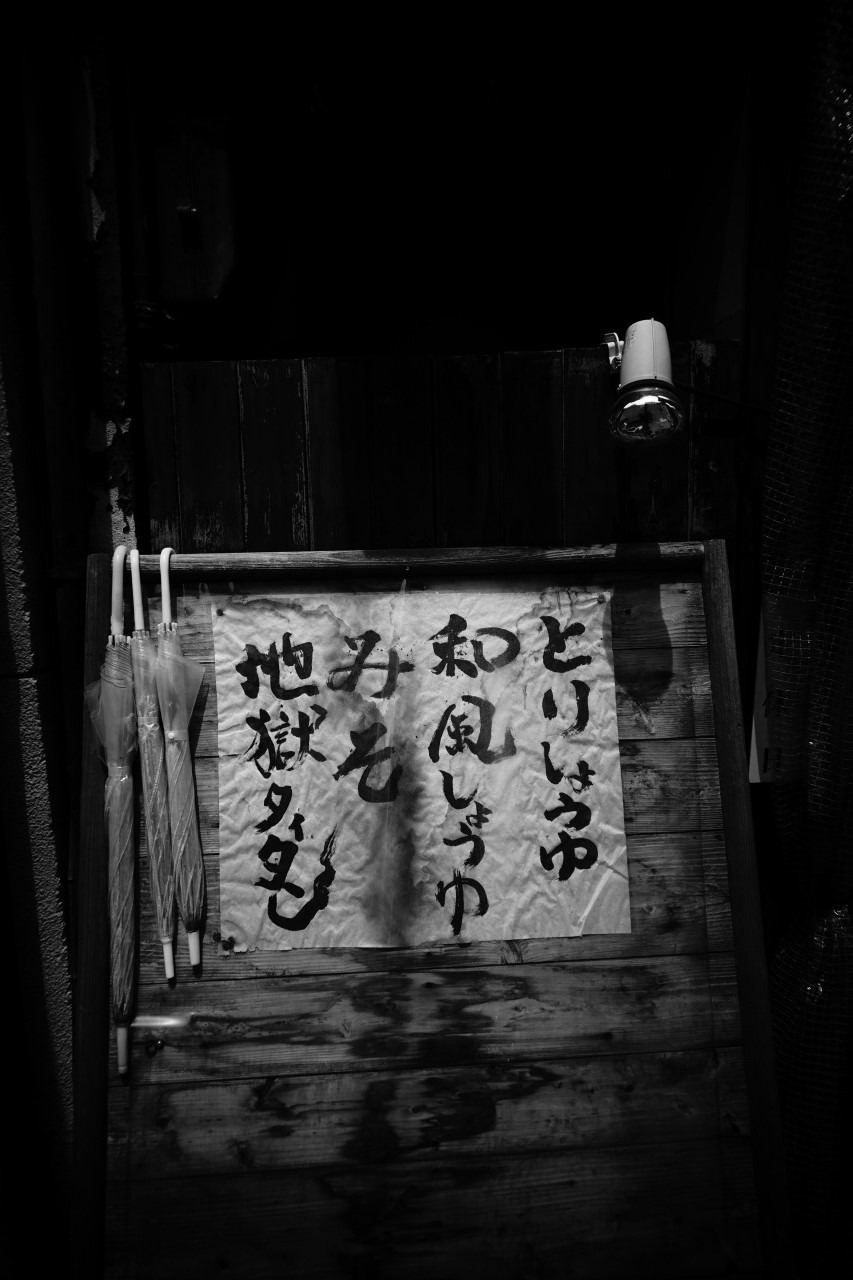 とりしょうゆ
和風しょうゆ
みそ
地獄タイタン